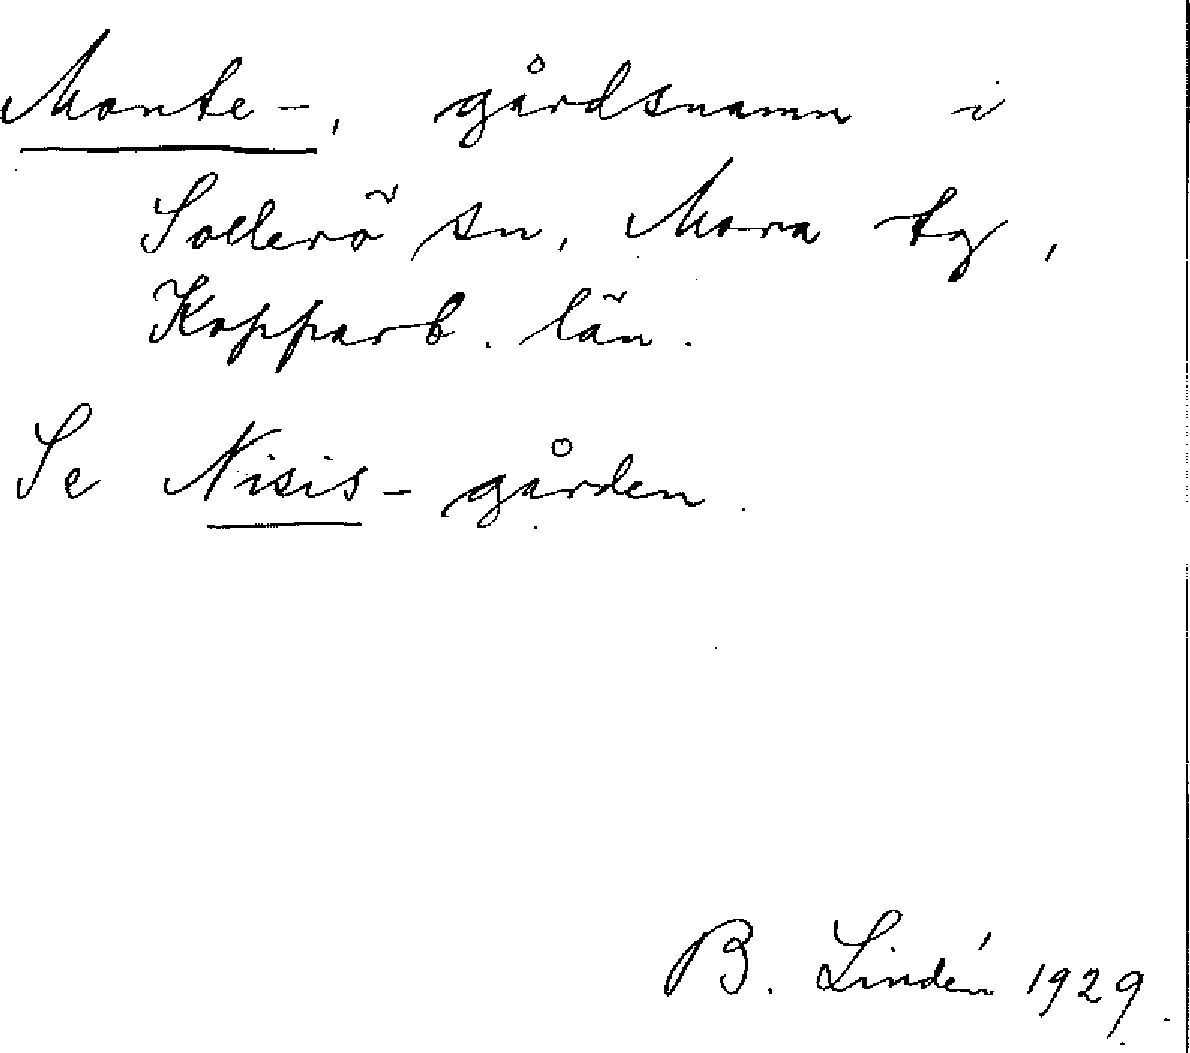 Monte-, gårdsnamn i
Sollerö sn, Mora tg,
Kopparb. län.
Se Nisis-gården.
B. Lindén 1929.